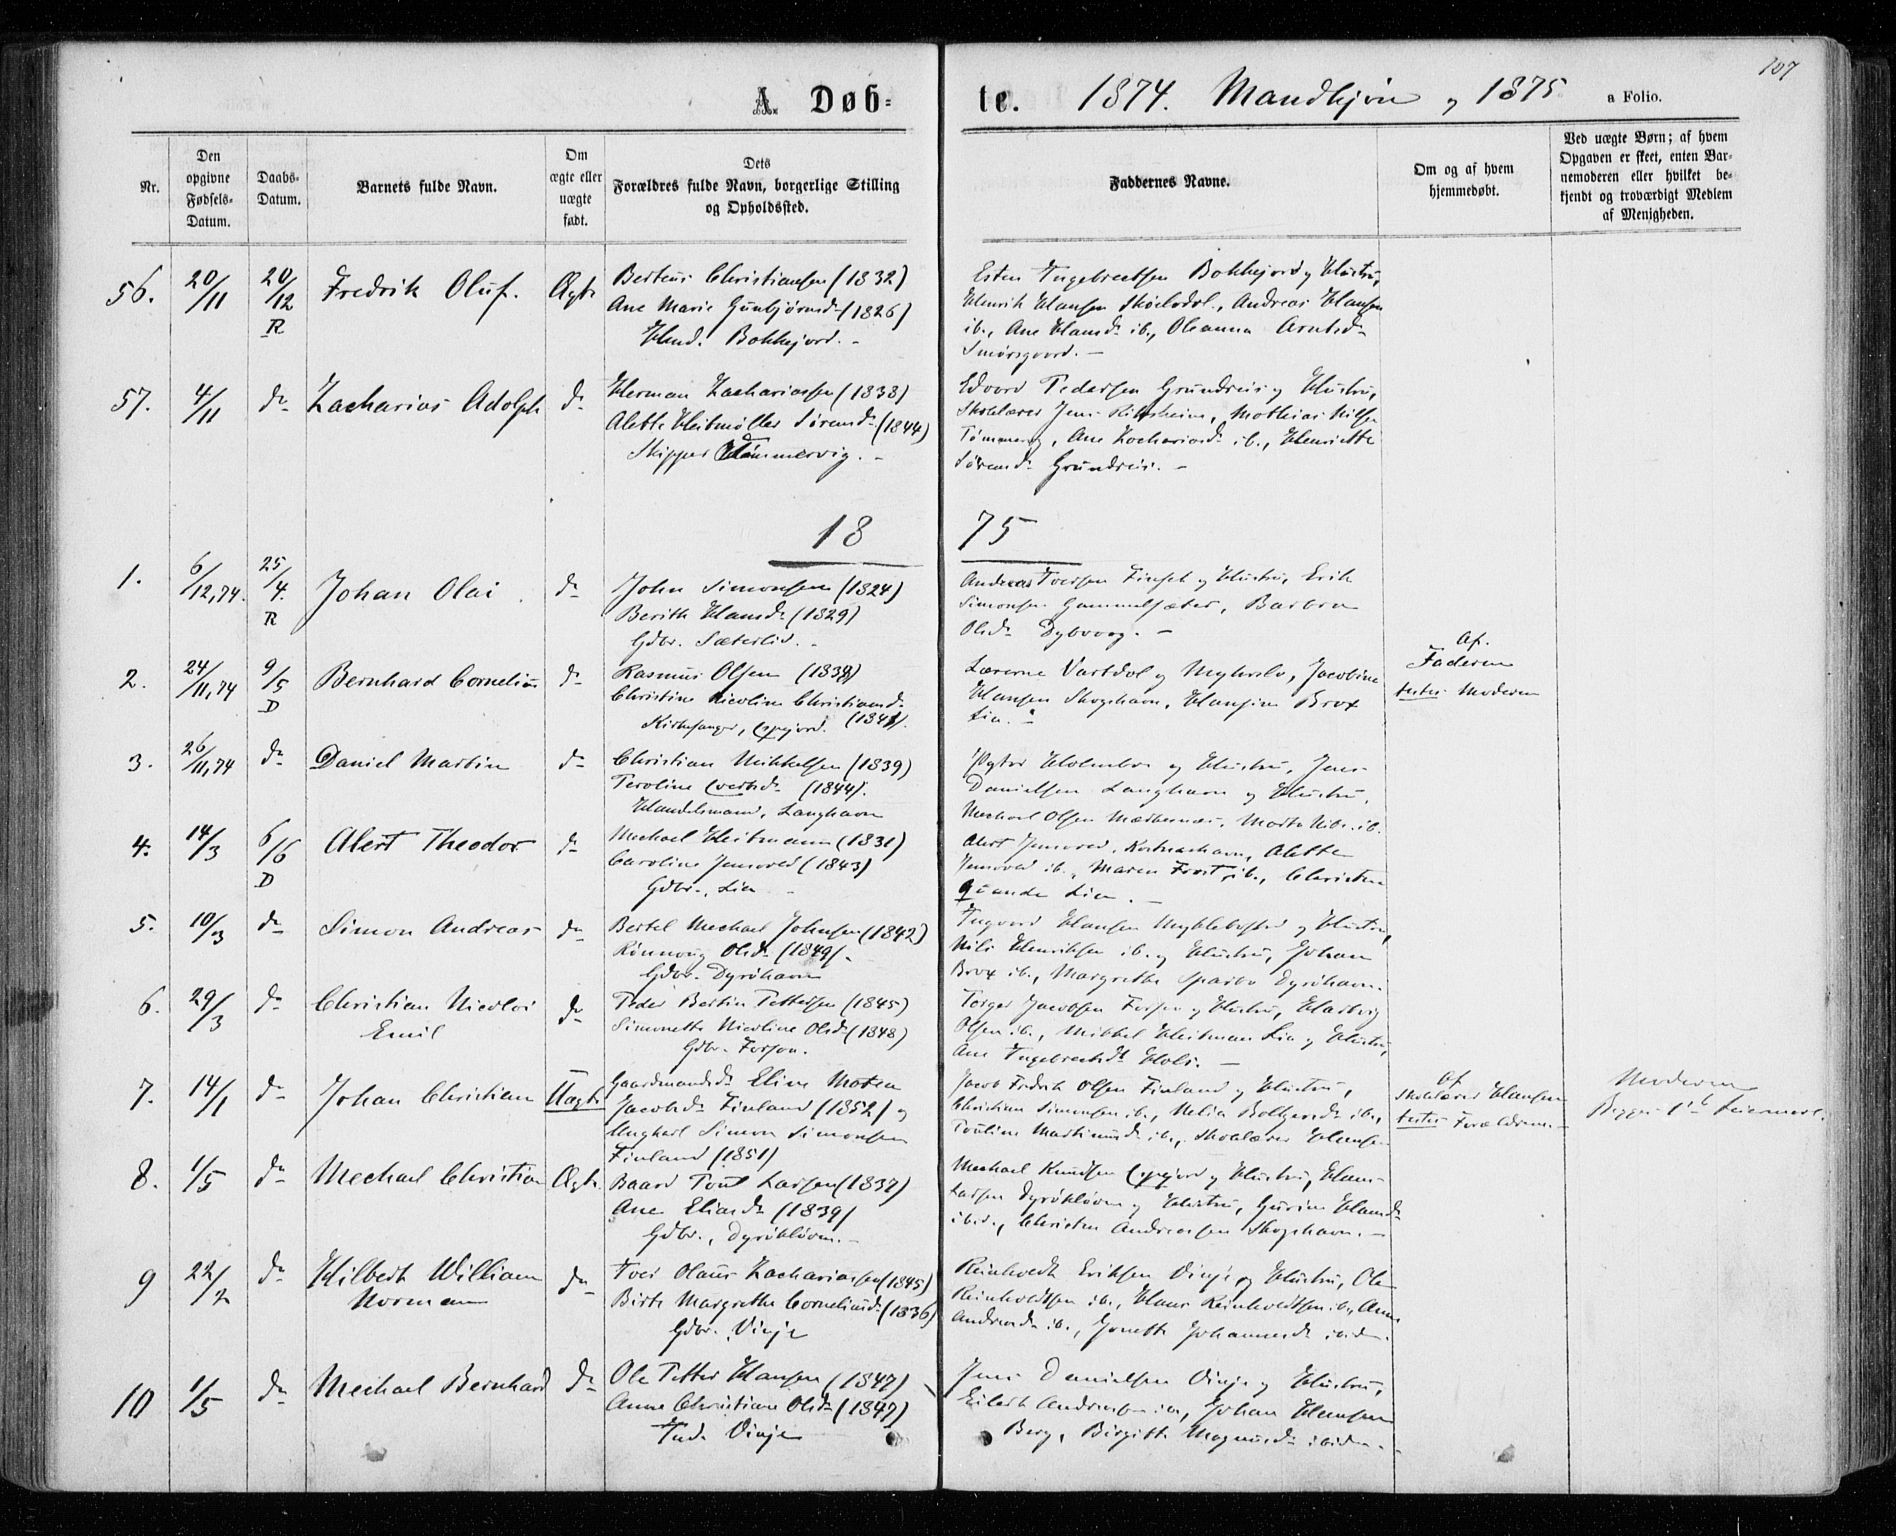 107
A. Døb-
te. 1874. Mandkjøn og 1875 a Folio.
Nr.
Den opgivne Fødsels-Datum.
Daabs-Datum.
Barnets fulde Navn.
Om ægte eller uægte født.
Dets Forældres fulde Navn, borgerlige Stilling og Opholdssted.
Faddernes Navne.
Om og af hvem hjemmedøbt.
Ved uægte Børn; af hvem Opgaven er skeet, enten Barnemoderen eller hvilket bekjendt og troværdigt Medlem af Menigheden.
56. 20/11 20/12 R Fredrik Oluf. Ægte
Berteus Christiansen (1832)
Ane Marie Gunbjørnsd. (1826)
Bokkejord.
Esten Ingebrectsen Bokkejord og Hustru,
Henrik Hansen, Andreas Hansen
ib., Ane Hansd. ib., Oleanna Arntsd.
57. 4/11 do Zacharias Adolph do
Herman Zachariassen (1838)
Alette Heitmøller Sørensd. (1844)
Skipper Tømmervig.
Edvard Pedersen Grundreis og Hustru,
Skolelærer Jens, Mathias Nilsen
Tømmerv., Ane Zachariasd. ib., Henriette
Sørensd. Grundreis.
18 75
1. 6/12,74. 25/4. R Johan Olai. do
John Simonsen (1824)
Berith Hansd. (1829)
Gdbr. Sæterlid.
Andreas Iversen Finset og Hustru, Erik
Simonsen Gammelsæter, Barbra
Olsd. Dybvaag.
2. 24/11,74 9/5 D Bernhard Cornelius do
Rasmus Olsen (1839)
Christine Nicoline Christiansd.
Kirkesanger, (1848).
Lærerne Vartdal og Myhrslo, Jacobine
Hansen Skogshavn, Hansine Brox
Lia.
Af. Faderen
testes Moderen
3. 26/11,74 do Daniel Martin do
Christian Mikkelsen (1839)
(1844).
Handelsmand, Langhavn
Holmboe og Hustru, Jens
Danielsen Langhavn og Hustru,
Mechael Olsen
4. 14/3 6/6 D Alert Theodor do
Mechael Heitmann (1831)
Caroline Jensvold (1843)
Gdbr., Lia
Alert Jensvold, Alette
Jensvold ib., Maren Frost, ib., Christen
Qvande Lia.
5. 10/3 do Simon Andreas do
Bertel Mechael Johnsen (1842)
Rønnoug Olsd. (1849).
Gdbr. Dyrøhavn
Ingvard Hansen Myklebostad og Hustru,
Nils Henriksen ib. og Hustru, Johan
Brox ib., Margrethe Sparbo Dyrøhavn.
6. 29/3 do Christian Nicolai do
Emil
Peder Bertin Pettersen (1845)
Simonette Nicoline Olsd. (1848)
Gdbr.
Torger Jacobsen og Hustru, Hartvig
Olsen ib., Mikkel Heitman Lia og Hustru,
Ane Ingebrectsd.
7. 14/1 do Johan Christian Uægte
Gaardmandsd. Eline Motea
Jacobsd. Finland (1852) og
Ungkarl Simon Simonsen
Finland (1851)
Jacob Fredrik Olsen Finland og Hustru,
Christian Simonsen ib., ib.,
ib., Skolelærer Hansen
Af Skolelærer Hansen
testes Forældrene.
Moderen
Begges 1ste Leiermaal.
8. 1/5 do Mechael Christian Ægte
Baard Poul Larsen (1837)
Ane Eliasd. (1839)
Gdbr., Dyrøkløven.
Mechael Knudsen og Hustru, Hans
Larsen Dyrøkløven og Hustru, Hansd.
ibid., Christen Andreassen Skogshavn.
9 22/2 do Hilbert William do
Norman
Iver Olaus Zachariassen (1845)
Birte Margrethe Corneliusd. (1836)
Gdbr. Vinje
Reinholdt Eriksen Vinje og Hustru, Ole
Reinholdtsen ib., Hans Reinholdtsen ib., Anne
Andreasd. ib., Johannesd. ibidem.
10 1/5 do Meihael Bernhard do
Ole Petter Hansen (1847)
Anne Christiane Olsd. (1847)
Ind. Vinje
Jens Danielsen Vinje og Hustru,
Eilert Andreassen ib., Johan Hansen
Berg, Birgitte Magnusd. ibidem.